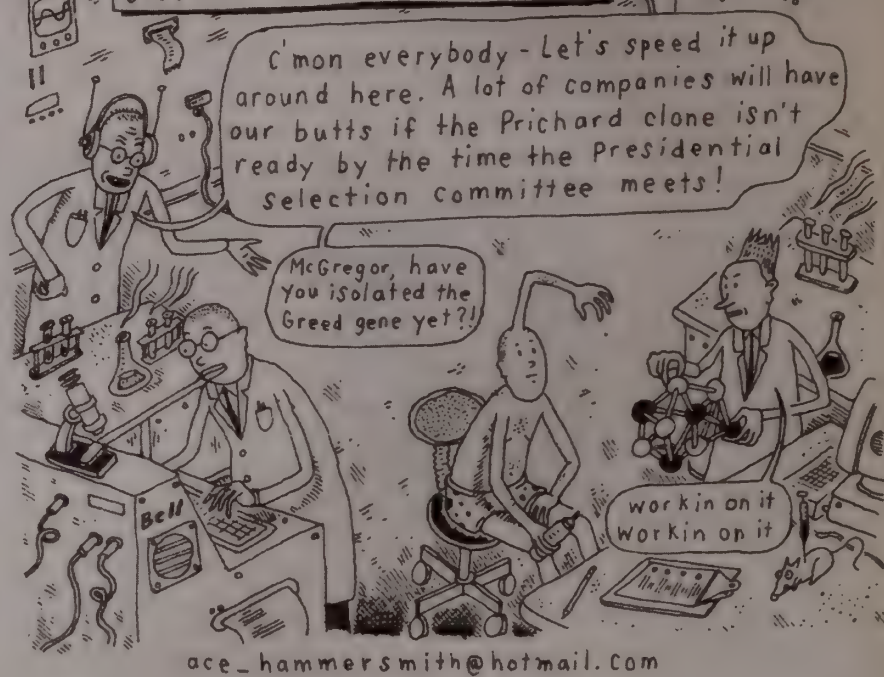 C'mon everybody - Let's speed it up
around here. A lot of companies will have
our butts if the Prichard clone isn't
ready by the time the Presidential
selection committee meets!
McGregor, have
you isolated the
Greed gene yet?!
workin on it
workin on it
Bell
ace_hammersmith@hotmail.com